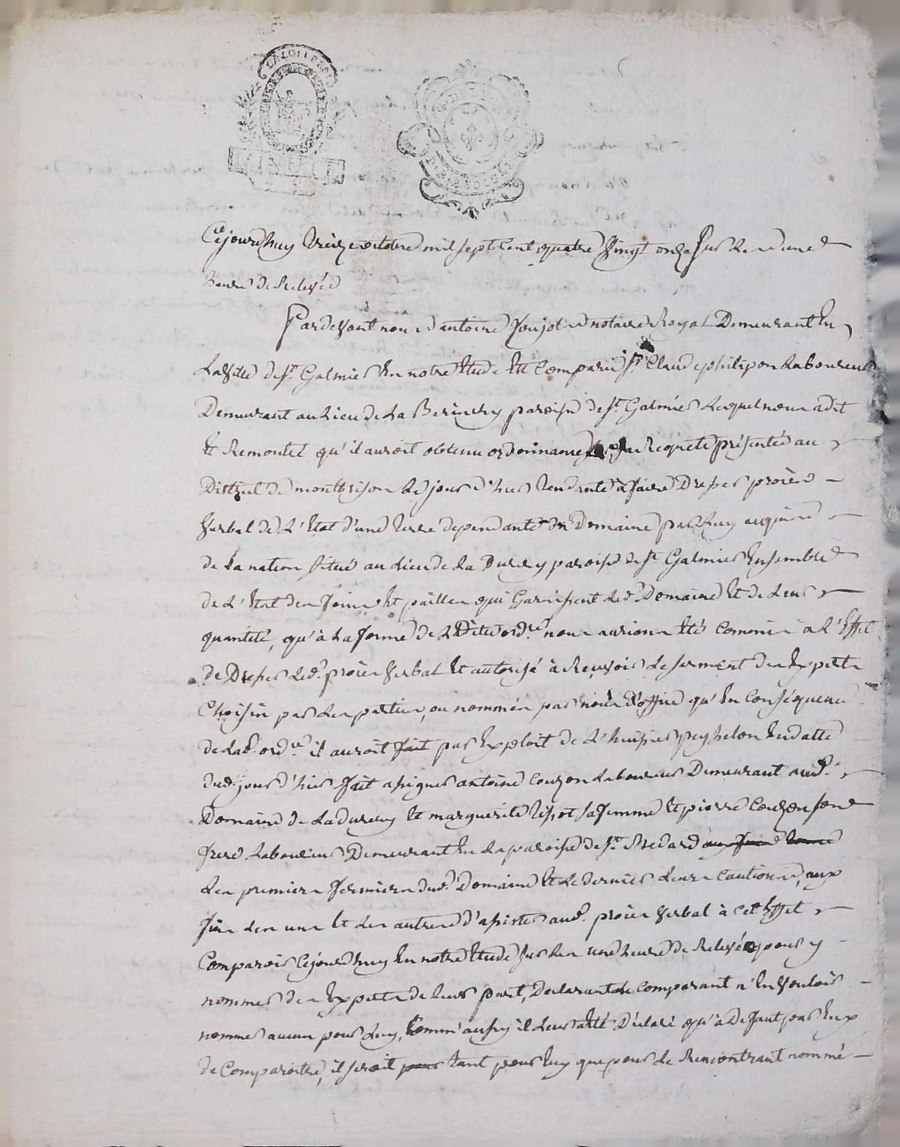 LA LOI
Cejourdhuy treize octobre mil sept cent quatre vingt onze sur les deux
heures de Relevée
Pardevant nous antoine notaire Royal Demeurant En
La ville de st Galmier En notre Etude Est Comparu sr Claude philipon Laboureur
Demeurant au Lieu de La paroisse de st Galmier Lequel nous a dit
Et Remontré qu'il auroit obtenu ordonnance sur Requete présentée au
District de montbrison Le jour d'hier tendante a faire Dresser procès
verbal de L'Etat d'une terre dependante du Domaine par Luy acquis
de La nation situé au Lieu de La Durey paroisse de st Galmier Ensemble
de L'Etat des foins et pailles qui Garnissent Led. Domaine Et de Leur
quantité, qu'à La forme de Ladite ordce nous aurions Eté Commis a L'Effet
de Dresser Led. procès verbal Et autorisé à Recevoir Le serment des Experts
Choisis par Les parties, ou nommés par nous d'office qu'En Conséquence
de Lad. ordce il auroit fait par Exploit de L'huissier peysselon En datte
dud. jour d'hier fait assigner antoine Couzon Laboureur Demeurant aud.
Domaine de La durey Et marguerite sa femme Et pierre Couzon son
frere Laboureur Demeurant En La paroisse de st Medard
Les premiers fermiers dud. Domaine Et Le dernier Leur Caution, aux
fins Les uns Et Les autres d'assister aud. procès verbal à Cet Effet
Comparoir Cejourdhuy En notre Etude sur Les une heure de Relevée, pour y
nommer des Experts de Leur part, Declarant Le Comparant n'En vouloir
nommer aucun pour Luy, Comm'aussy il Leur a Eté Déclaré qu'à Defaut par Eux
de Comparoitre, il seroit tant pour Luy que pour Le Rencontrant nommé